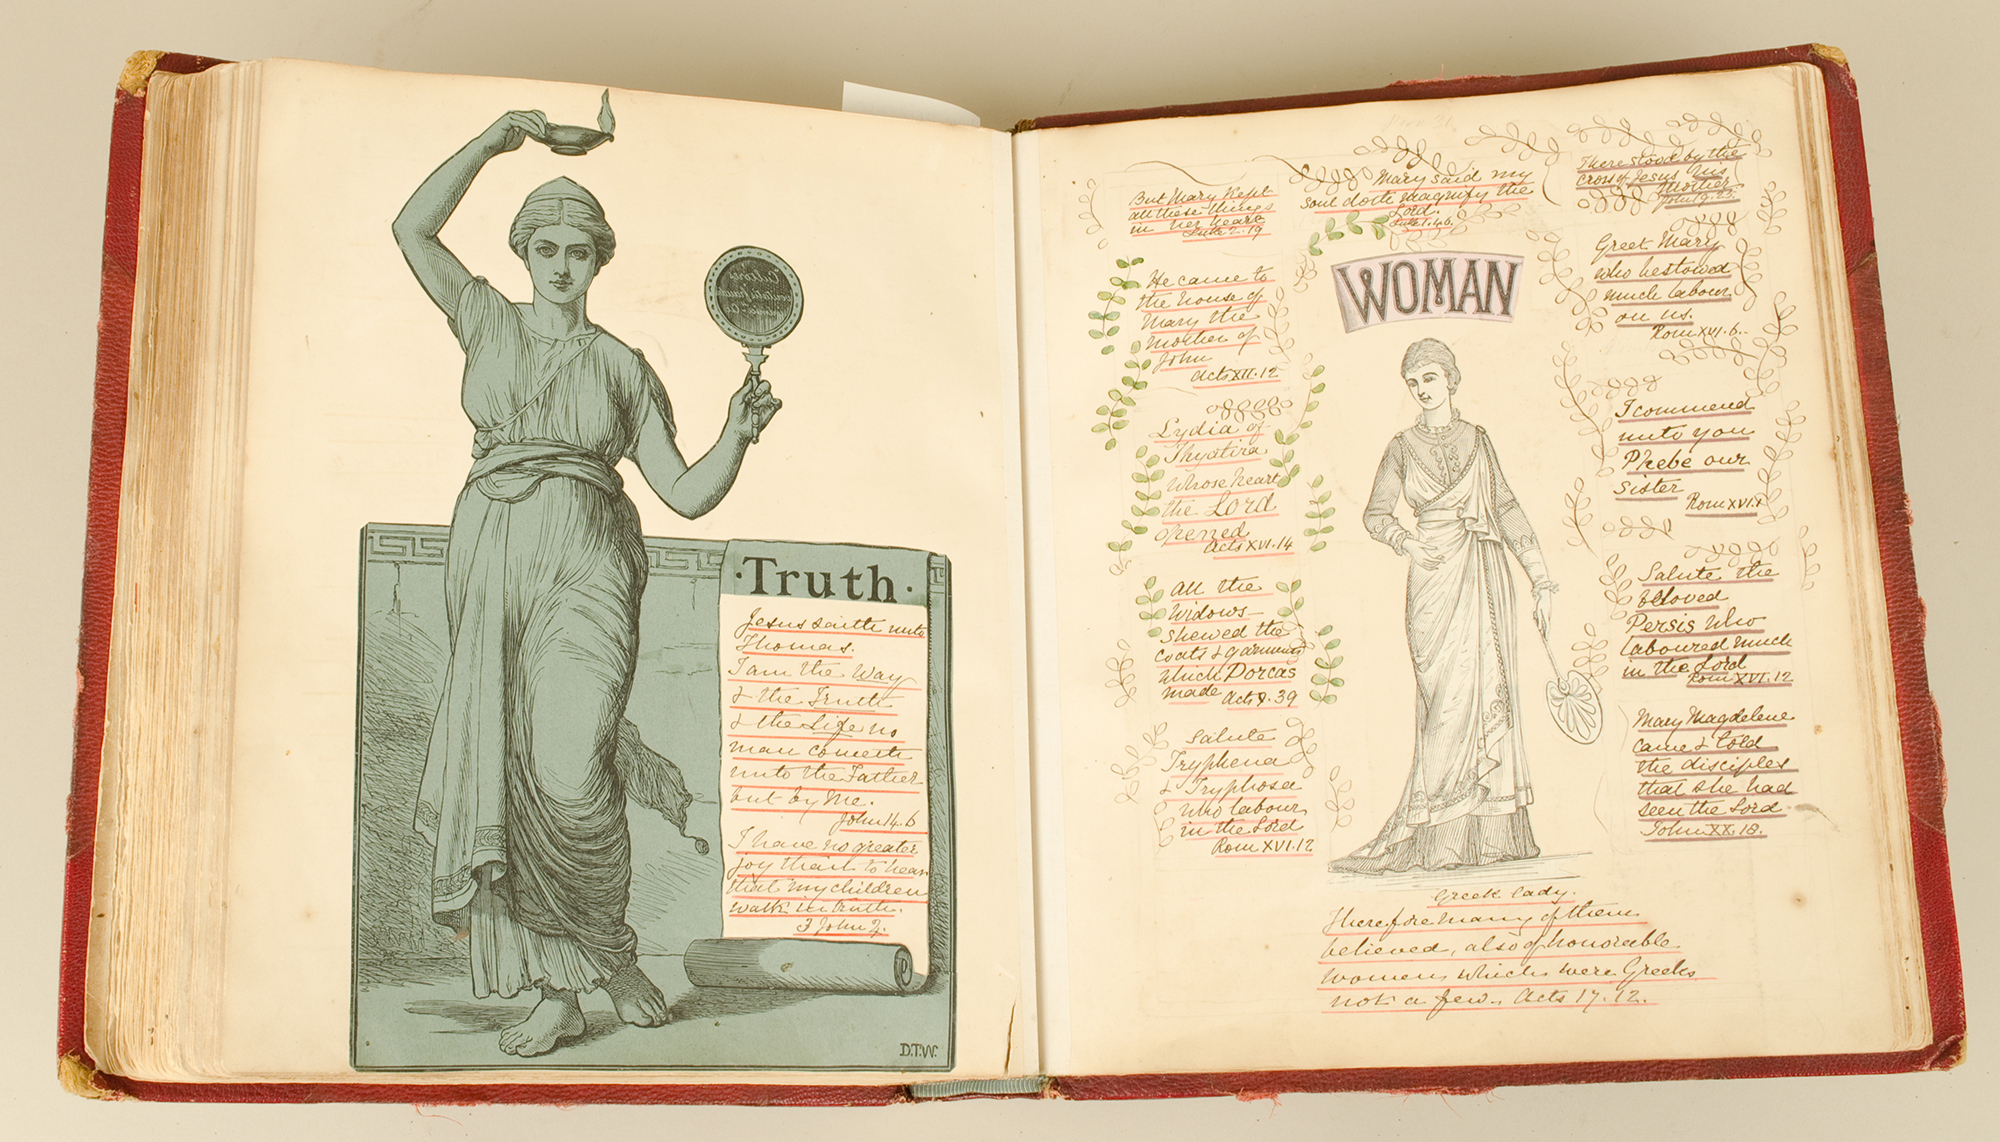 Truth
Jesus saith unto
Thomas.
I am the Way
& the Truth
& the Life no
man cometh
unto the Father
but by Me.
John 14. 6
I have no greater
joy than to hear
that my children
walk in truth.
3 John 4.
D.T.W.
But Mary kept
all these things
in her heart
Luke 2. 19
He came to
the house of
Mary the
mother of
John
Acts XII. 12
Lydia of
Thyatira
whose heart
the Lord
opened
Acts XVI. 14
All the
Widows
shewed the
coats & garments
which Dorcas
made Acts 9. 39
Salute
Tryphena
& Tryphosa
who labour
in the Lord
Rom XVI. 12
Mary said my
soul doth magnify the
Lord.
Luke 1. 46.
WOMAN
Greek lady.
Therefore many of them
believed, also of honorable
women which were Greeks
not a few. Acts 17. 12.
There stood by the
cross of Jesus his
Mother
John 19. 25.
Greet Mary
who bestowed
much labour
on us.
Rom XVI. 6.
I commend
unto you
Phebe our
sister
Rom XVI. 1
Salute the
beloved
Persis who
laboured much
in the Lord
Rom XVI. 12
Mary Magdelene
came & told
the disciples
that she had
seen the Lord
John XX. 18.